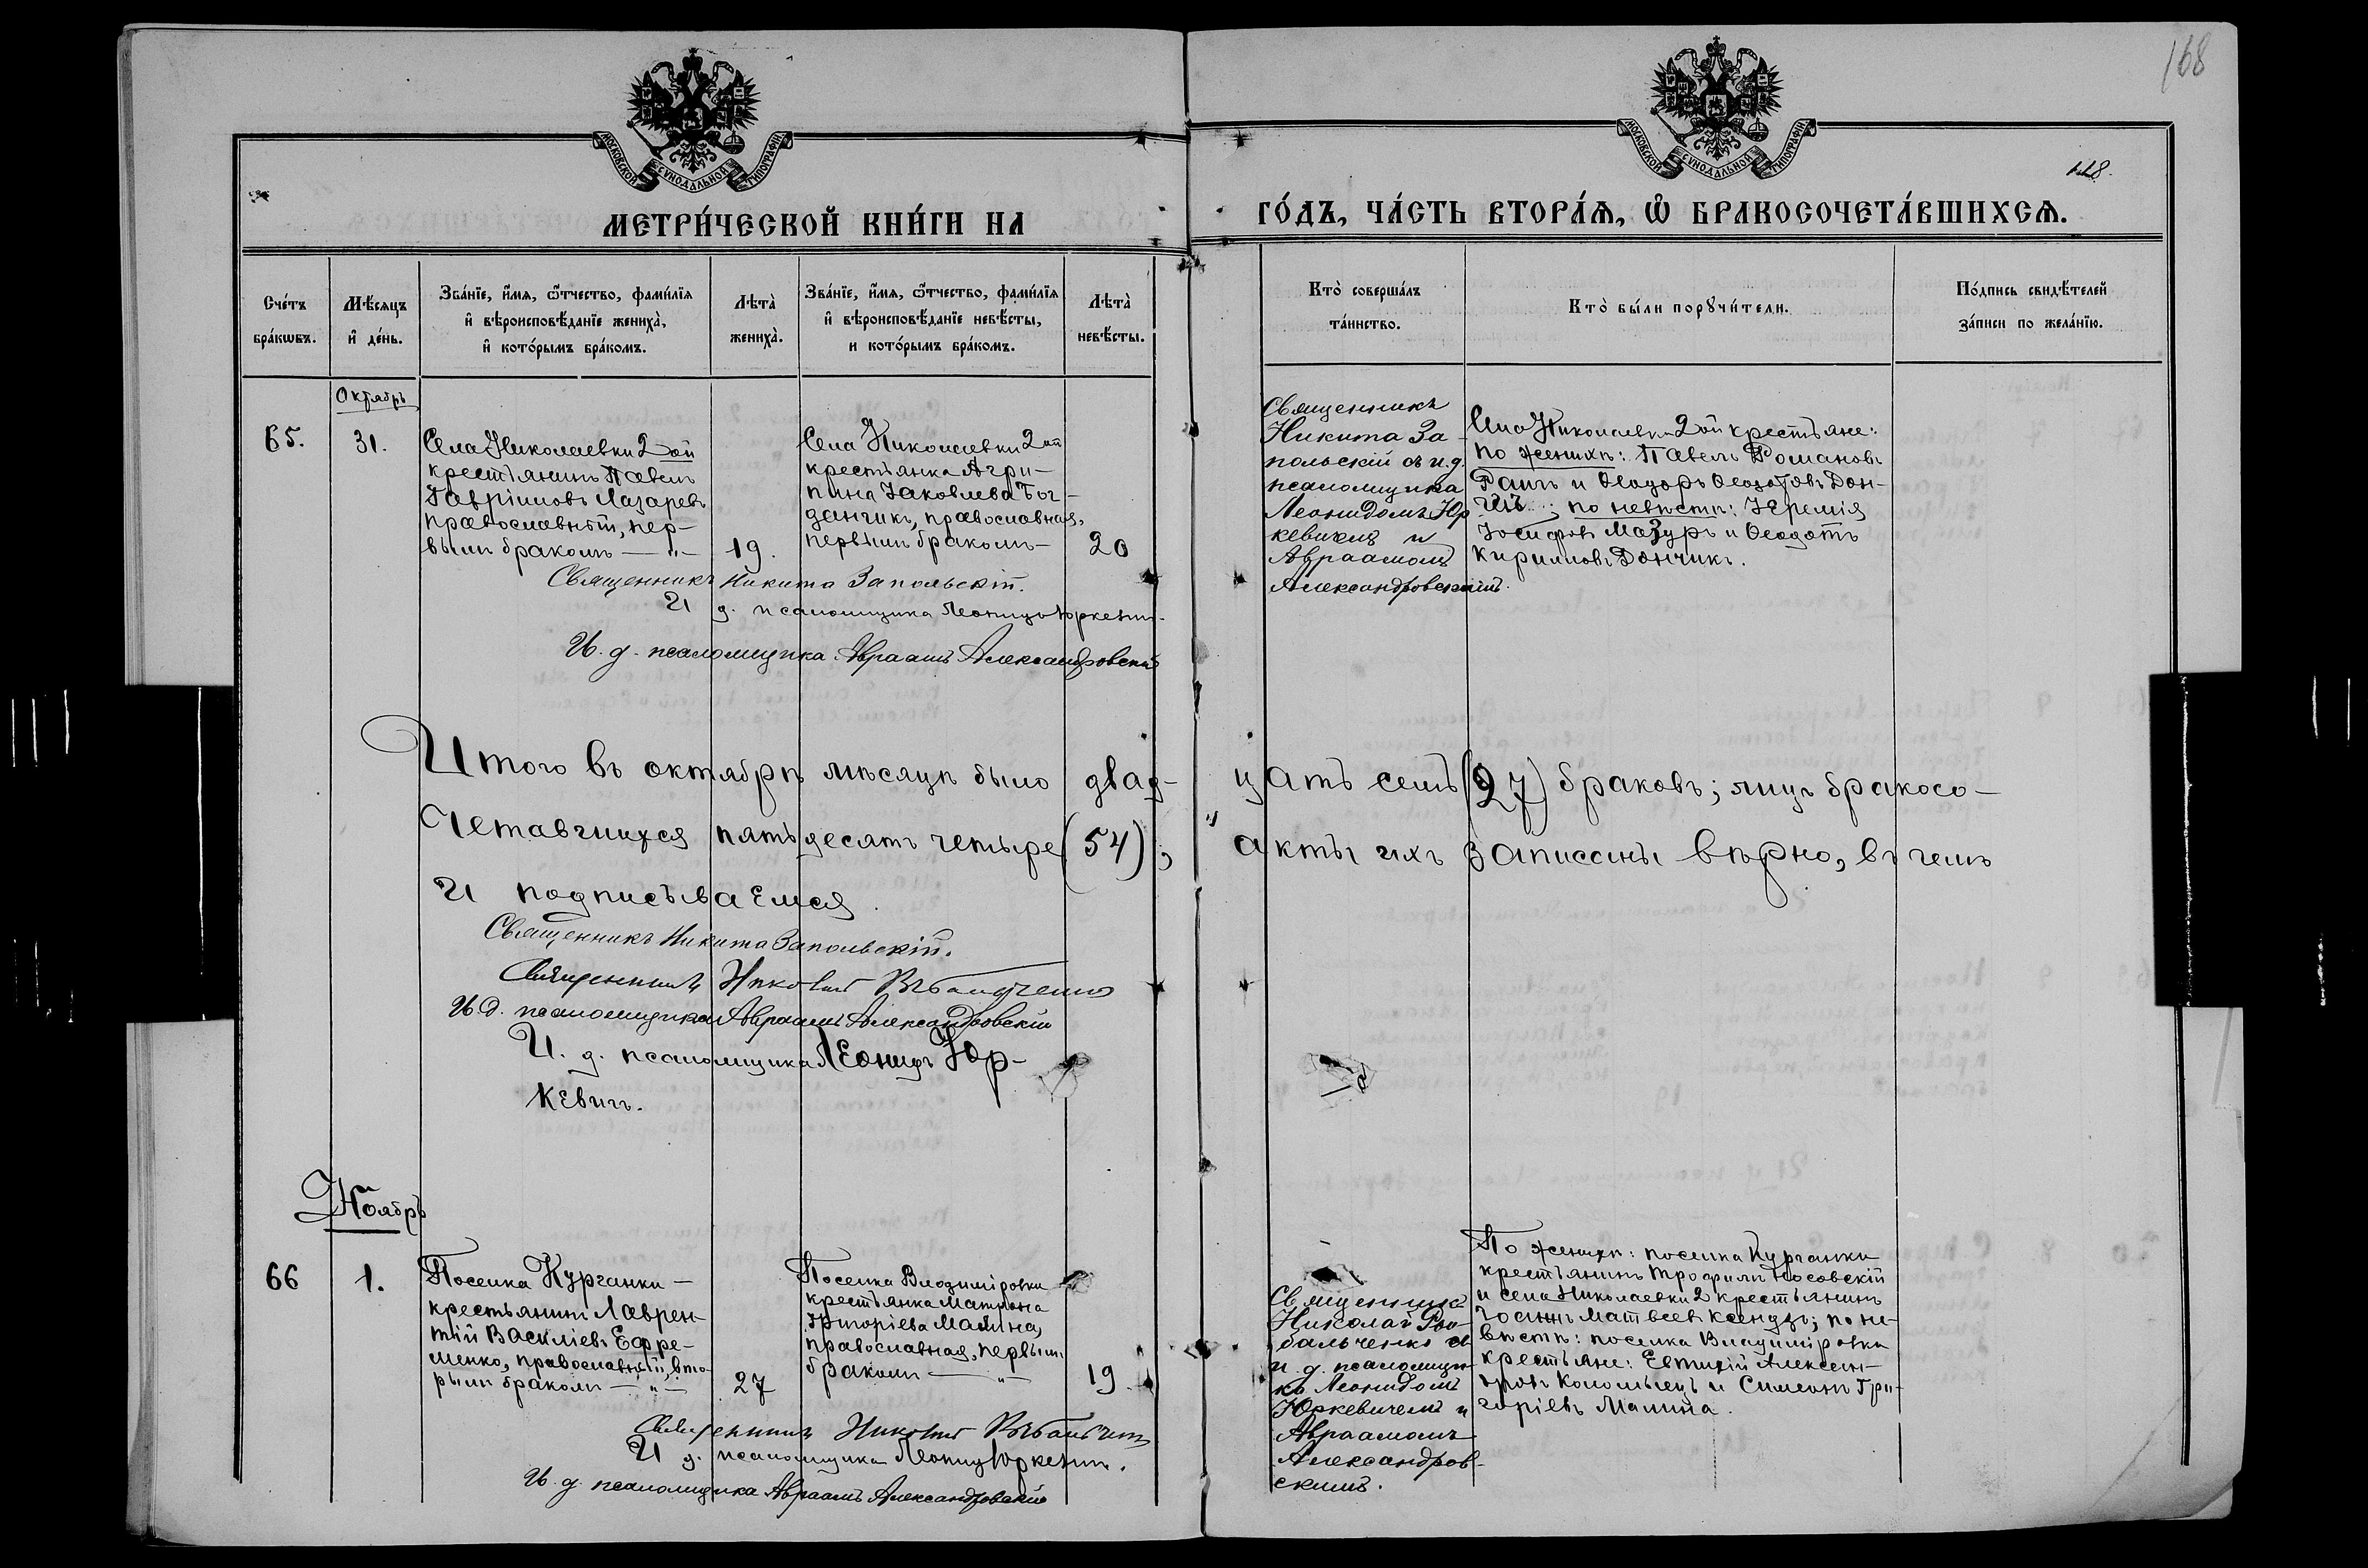 168
118.
МОСКОВСКОЙ СѴНОДАЛЬНОЙ ТИПОГРАФІИ
МОСКОВСКОЙ СѴНОДАЛЬНОЙ ТИПОГРАФІИ
МЕТРИ́ЧЕСКОЙ КНИ́ГИ НА
ГО́ДЪ, ЧА́СТЬ ВТОРА́Ѧ, Ѽ БРАКОСОЧЕТА́ВШИХСѦ.
Сче́тъ
бра́кѡвъ.
Мѣ́сѧцъ
и҆ де́нь.
Зва́нїе, и҆́мѧ, ѻ҆́тчество, фами́лїѧ
и҆ вѣроисповѣ́данїе жениха̀,
и҆ кото́рымъ бра́комъ.
Лѣта̀
жениха̀.
Зва́нїе, и҆́мѧ, ѻ҆́тчество, фами́лїѧ
и҆ вѣроисповѣ́данїе невѣ́сты,
и кото́рымъ бра́комъ.
Лѣта̀
невѣ́сты.
Кто̀ соверша́лъ
та́инство.
Кто̀ бы́ли порꙋчи́тели.
По́дпись свидѣ́телей
за́писи по жела́нїю.
Октябрь
65.
31.
Села Николаевки 2ой
крестьянинъ Павелъ
Гавріиловъ Лазаревъ
православный, пер-
вымъ бракомъ — „ —
19.
Села Николаевки 2ой
крестьянка Агри-
пина Іаковлева Бог-
данчикъ, православная,
первымъ бракомъ —
20
Священникъ
Никита За-
польскій съ и.д.
псаломщика
Леонидомъ Юр
кевичемъ и
Авраамомъ
Александровскимъ.
Села Николаевки 2ой крестьяне:
по женихѣ: Павелъ Романовъ
и Ѳеодоръ Ѳеодотовъ Дон-
; по невѣстѣ: Іеремія
Іосифовъ Мазуръ и Ѳеодотъ
Кирилловъ Дончикъ.
Священникъ Никита Запольскій.
И д. псаломщика Леонидъ Юркевичъ.
И. д. псаломщика Авраамъ Александровскій
Итого въ октябрѣ мѣсяцѣ было двад-
цать семь (27) браковъ; лицъ бракосо-
четавшихся пятьдесятъ четыре (54),
акты ихъ записаны вѣрно, въ чемъ
и подписываемся.
Священникъ Никита Запольскій.
Священникъ Николай
И.д. псаломщика Авраамъ Александровскій
И. д. псаломщика Леонидъ Юр-
кевичъ.
Ноябрь
66
1.
Поселка Курганки —
крестьянинъ Лаврен-
тій Василіевъ Ефре-
менко, православный, вто-
рымъ бракомъ — „ —
27
Поселка Владиміровки
крестьянка Матрона
Григоріева Малина,
православная, первымъ
бракомъ — „ —
19
Священникъ
Николай Ры-
бальченко съ
и. д. псаломщи-
ка Леонидомъ
Юркевичемъ и
Авраамомъ
Александров-
скимъ.
По женихѣ: поселка Курганки
крестьянинъ Трофимъ Носовскій
и села Николаевки 2 крестьянинъ
Іоаннъ Матвеевъ Ксендзъ; по не-
вѣстѣ: поселка Владиміровки
крестьяне: Евтихій Александ-
ровъ Коломыецъ и Симеонъ Гри-
горіевъ Малина.
Священникъ Николай
И д. псаломщика Леонидъ Юркевичъ.
И. д. псаломщика Авраамъ Александровскій